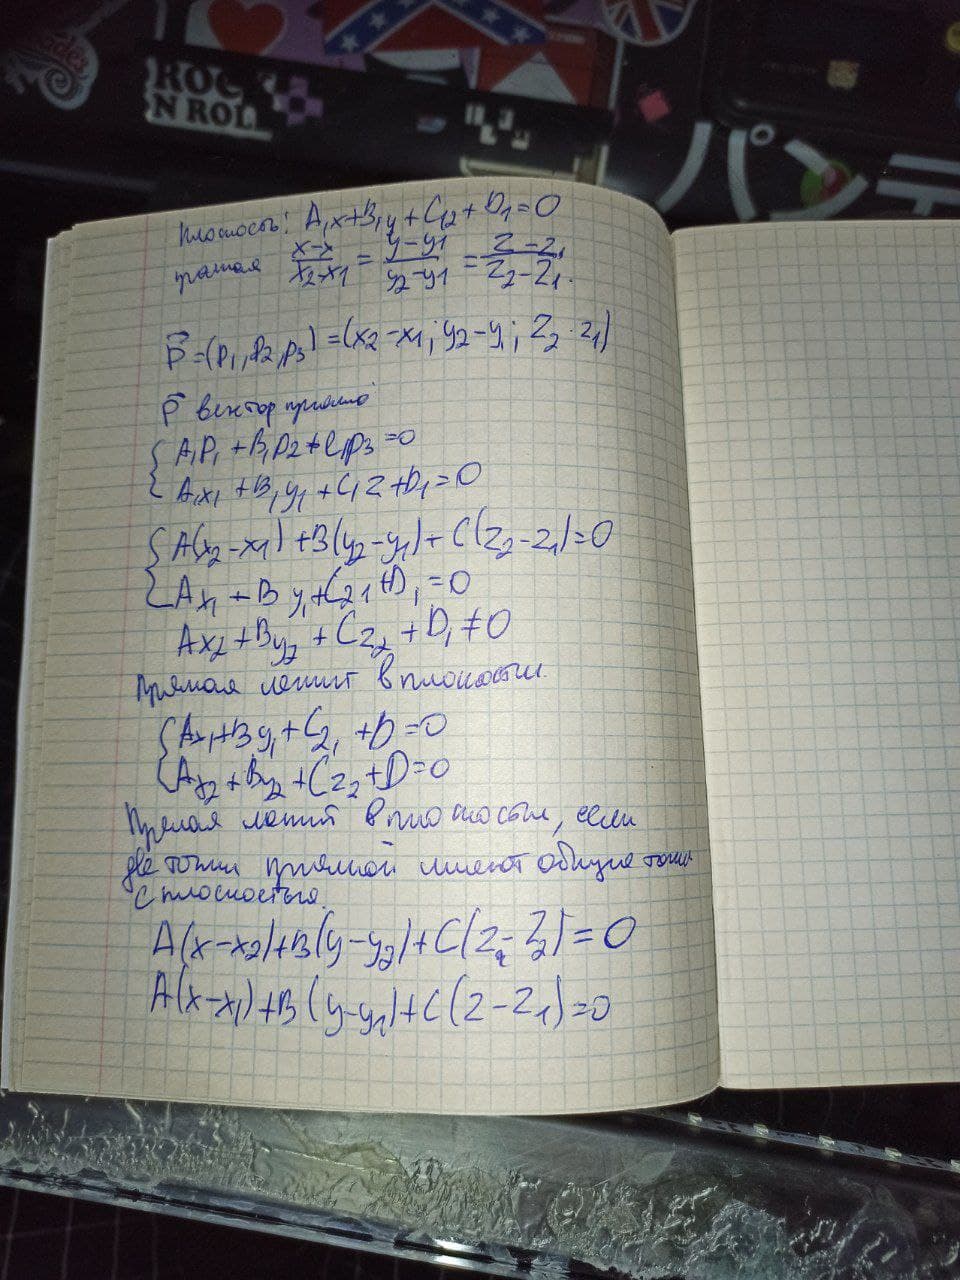 ROCK
N ROLL
パンテ
Плоскость: A₁x+B₁y+C₁z+D₁=0
прямая (x-x)/(x₂-x₁) = (y-y₁)/(y₂-y₁) = (z-z₁)/(z₂-z₁).
p⃗=(p₁,p₂,p₃)=(x₂-x₁; y₂-y₁; z₂-z₁)
p⃗ вектор прямой
A₁p₁+B₁p₂+C₁p₃=0
A₁x₁+B₁y₁+C₁z+D₁=0
A(x₂-x₁)+B(y₂-y₁)+C(z₂-z₁)=0
Ax₁+By₁+Cz1+D₁=0
Ax₂+By₂+Cz₂+D₁≠0
Прямая лежит в плоскости.
Ax₁+By₁+Cz₁+D=0
Ax₂+By₂+Cz₂+D=0
Прямая лежит в плоскости, если
две точки прямой имеют общие точки
с плоскостью.
A(x-x₂)+B(y-y₂)+C(z-z₂)=0
A(x-x₁)+B(y-y₁)+C(z-z₁)=0